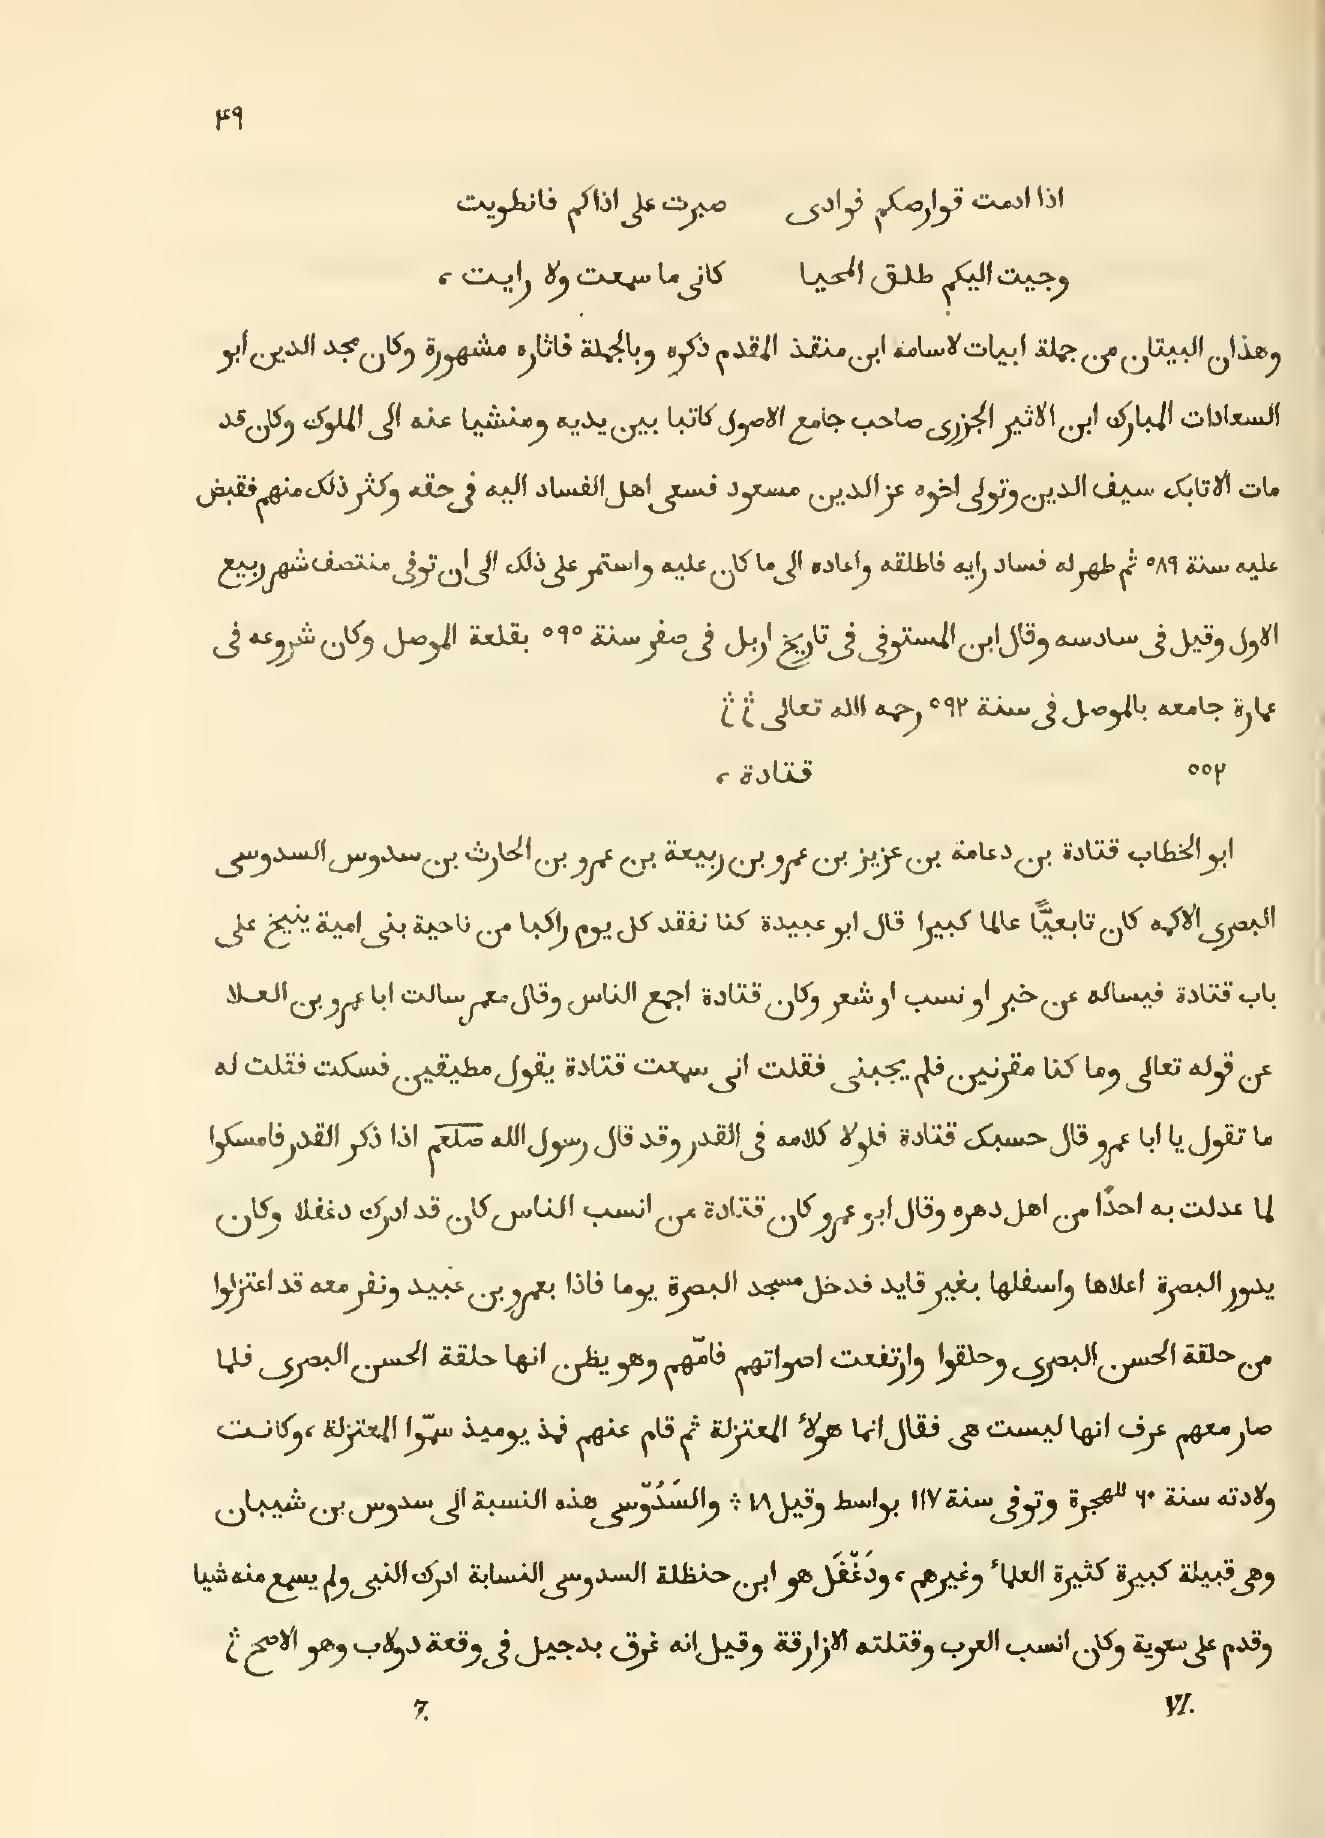 ۴۹
اذا ادمت قوارصكم فوادى صبرت على اذاكم فانطويت
وجيت اليكم طلق المحيا كانى ما سمعت ولا رايت ،
وهذان البيتان من جملة ابيات لاسامة ابن منقذ المقدم ذكره وبالجملة فاثاره مشهورة وكان مجد الدين ابو
السعادات المبارك ابن الاثير الجزرى صاحب جامع الاصول كاتبا بين يديه ومنشيا عنه الى الملوك وكان قد
مات الاتابك سيف الدين وتولى اخوه عز الدين مسعود فسعى اهل الفساد اليه فى حقه وكثر ذلك منهم فقبض
عليه سنة ٥٨٩ ثم ظهر له فساد رايه فاطلقه واعاده الى ما كان عليه واستمر على ذلك الى ان توفى منتصف شهر ربيع
الاول وقيل فى سادسه وقال ابن المستوفى فى تاريخ اربل فى صفر سنة ٥٩٥ بقلعة الموصل وكان شروعه فى
عمارة جامعه بالموصل فى سنة ٥٩٢ رحمه الله تعالى ۞ ۞
٥٥٢ قتادة ،
ابو الخطاب قتادة بن دعامة بن عزيز بن عمرو بن ربيعة بن عمرو بن الحارث بن سدوس السدوسى
البصرى الاكمه كان تابعيًّا عالما كبيرا قال ابو عبيدة كنا نفقد كل يوم راكبا من ناحية بنى امية ينيخ على
باب قتادة فيساله عن خبر او نسب او شعر وكان قتادة اجمع الناس وقال معمر سالت ابا عمرو بن العلا
عن قوله تعالى وما كنا مقرنين فلم يجبنى فقلت انى سمعت قتادة يقول مطيقين فسكت فقلت له
ما تقول يا ابا عمرو قال حسبك قتادة فلولا كلامه فى القدر وقد قال رسول الله صلعم اذا ذكر القدر فامسكوا
لما عدلت به احدًا من اهل دهره وقال ابو عمرو كان قتادة من انسب الناس كان قد ادرك دغفلا وكان
يدور البصرة اعلاها واسفلها بغير قايد فدخل مسجد البصرة يوما فاذا بعمرو بن عبيد ونفر معه قد اعتزلوا
من حلقة الحسن البصرى وحلقوا وارتفعت اصواتهم فامّهم وهو يظن انها حلقة الحسن البصرى فلما
صار معهم عرف انها ليست هى فقال انما هولاء المعتزلة ثم قام عنهم فمذ يوميذ سمّوا المعتزلة ، وكانت
ولادته سنة ٦٠ للهجرة وتوفى سنة ١١٧ بواسط وقيل ١٨ ÷ والسَدُوسى هذه النسبة الى سدوس بن شيبان
وهى قبيلة كبيرة كثيرة العلماء وغيرهم ، ودَغْفَل هو ابن حنظلة السدوسى النسابة ادرك النبى ولم يسمع منه شيا
وقدم على معوية وكان انسب العرب وقتلته الازارقة وقيل انه غرق بدجيل فى وقعة دولاب وهو الاصح ۞
VI. 7.